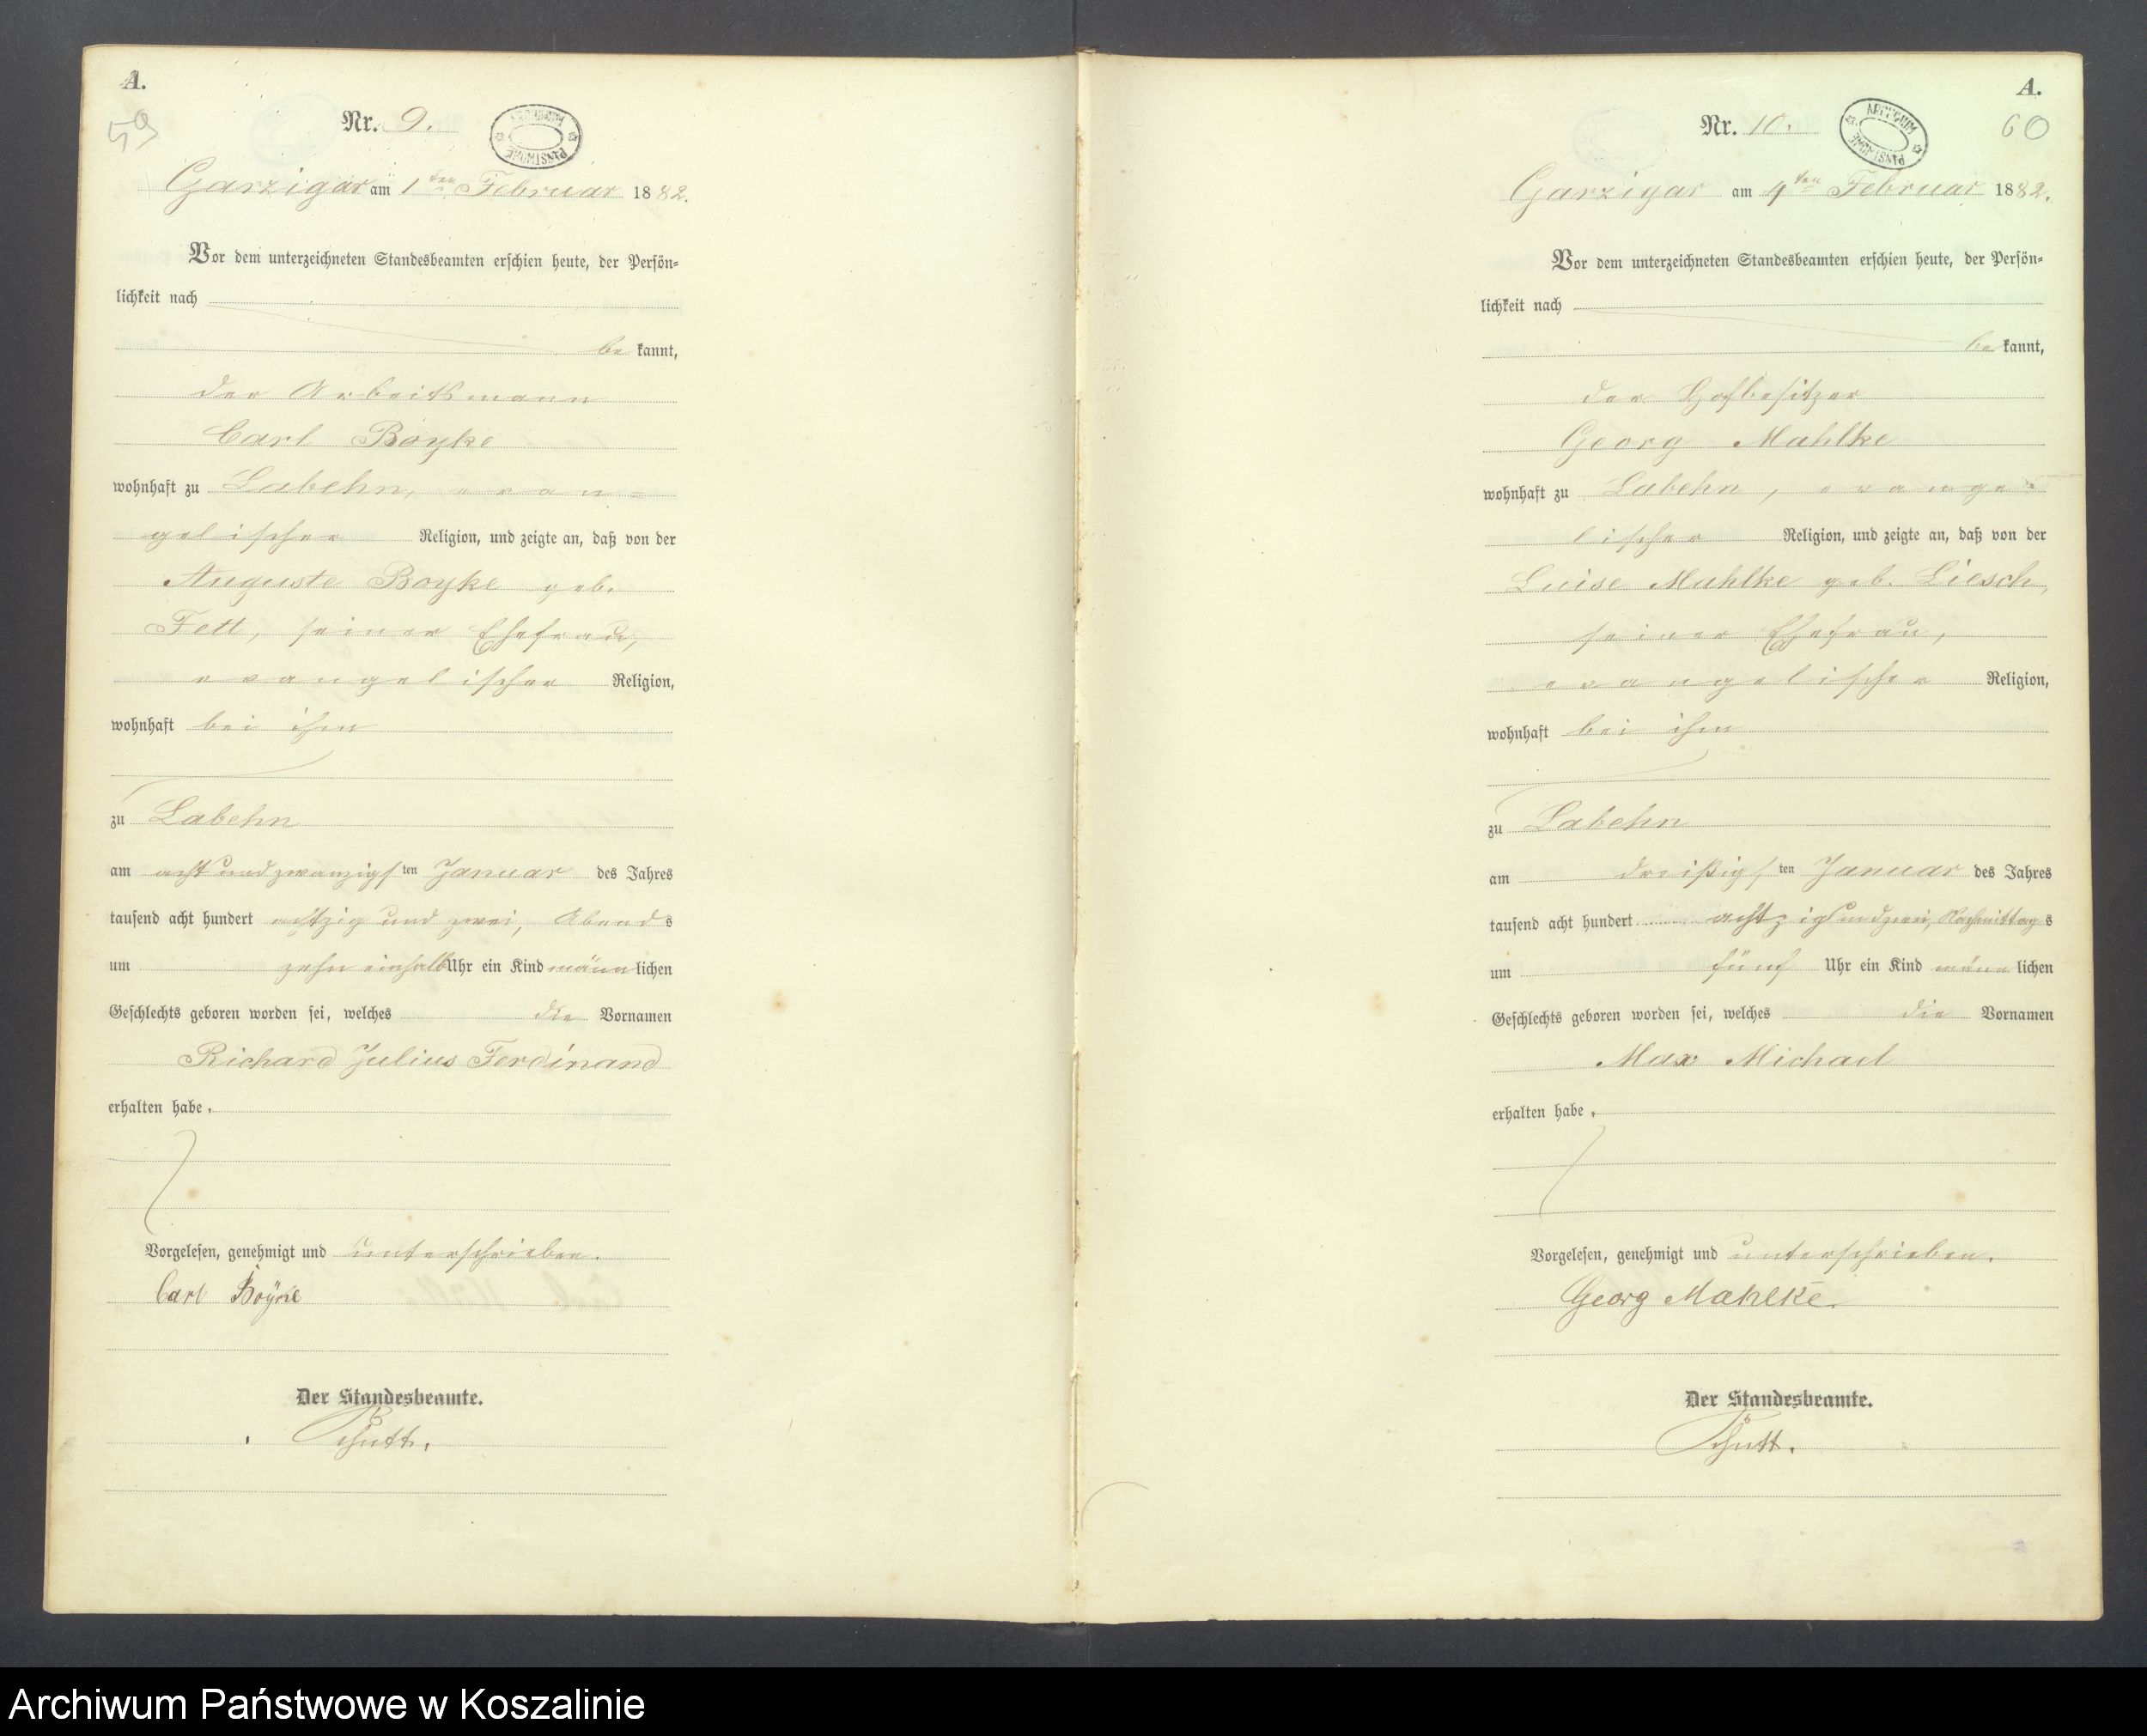 A.
59
Nr. 9.
ARCHIWUM PAŃSTWOWE
Garzigar am 1ten Februar 1882.
Vor dem unterzeichneten Standesbeamten erschien heute, der Persön-
lichkeit nach
be kannt,
der Arbeitsmann
Carl Boyke
wohnhaft zu Labehn, evan-
gelischer Religion, und zeigte an, daß von der
Auguste Boyke geb.
Fett, seiner Ehefrau,
evangelischer Religion,
wohnhaft bei ihm
zu Labehn
am acht und zwanzigsten Januar des Jahres
tausend acht hundert achtzig und zwei, Abends
um zehn einhalb Uhr ein Kind männlichen
Geschlechts geboren worden sei, welches die Vornamen
Richard Julius Ferdinand
erhalten habe.
Vorgelesen, genehmigt und unterschrieben.
Carl Boyke
Der Standesbeamte.
A.
60
Nr. 10.
ARCHIWUM PAŃSTWOWE
Garzigar am 4ten Februar 1882.
Vor dem unterzeichneten Standesbeamten erschien heute, der Persön-
lichkeit nach
be kannt,
der Hofbesitzer
Georg Mahlke
wohnhaft zu Labehn, evange-
lischer Religion, und zeigte an, daß von der
Luise Mahlke geb. Liesch,
seiner Ehefrau,
evangelischer Religion,
wohnhaft bei ihm
zu Labehn
am dreißigsten Januar des Jahres
tausend acht hundert achtzig und zwei, Nachmittags
um fünf Uhr ein Kind männlichen
Geschlechts geboren worden sei, welches die Vornamen
Max Michael
erhalten habe.
Vorgelesen, genehmigt und unterschrieben.
Georg Mahlke.
Der Standesbeamte.
Archiwum Państwowe w Koszalinie